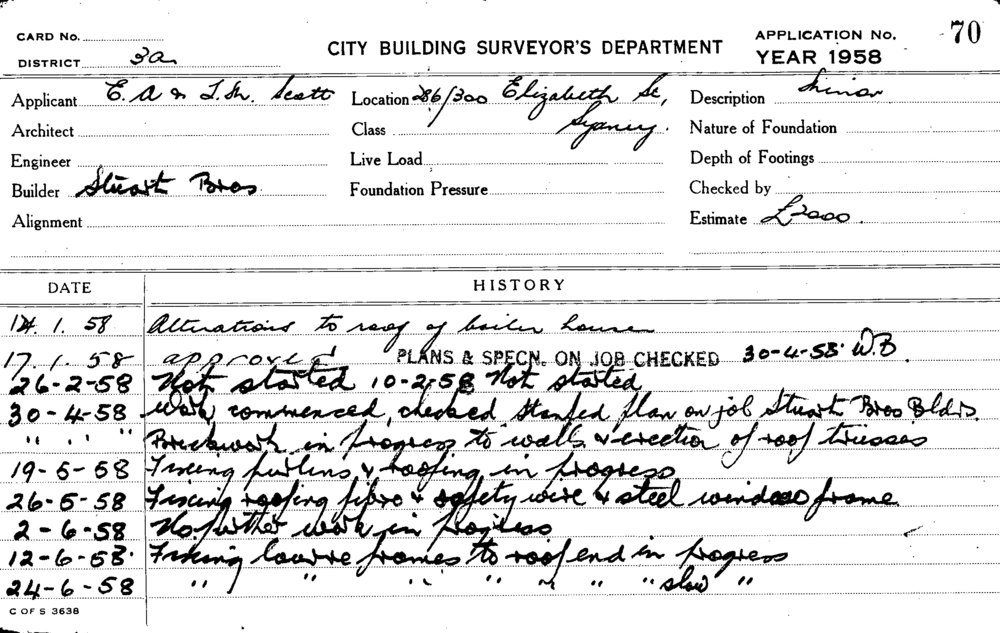 CARD No.
CITY BUILDING SURVEYOR'S DEPARTMENT
APPLICATION No. 70
DISTRICT 3a
YEAR 1958
Applicant E. A & I. M. Scott
Location 286/300 Elizabeth St, Sydney.
Description Minor
Architect
Class
Nature of Foundation
Engineer
Live Load
Depth of Footings
Builder Stuart Bros.
Foundation Pressure
Checked by
Alignment
Estimate £2000.
DATE HISTORY
14. 1. 58 Alterations to roof of boiler house
17. 1. 58 approved PLANS & SPECN. ON JOB CHECKED 30-4-58 W.B.
26-2-58 Not started 10-2-58 Not started
30-4-58 Work commenced, checked stamped plan on job Stuart Bros Bldrs.
" " " Brickwork in progress to walls & erection of roof trusses
19-5-58 Fixing purlins & roofing in progress
26-5-58 Fixing roofing fibro & safety wire & steel window frame
2-6-58 No further work in progress
12-6-58 Fixing louvre frames to roof end in progress
24-6-58 " " " " " " " slow "
C OF S 3638